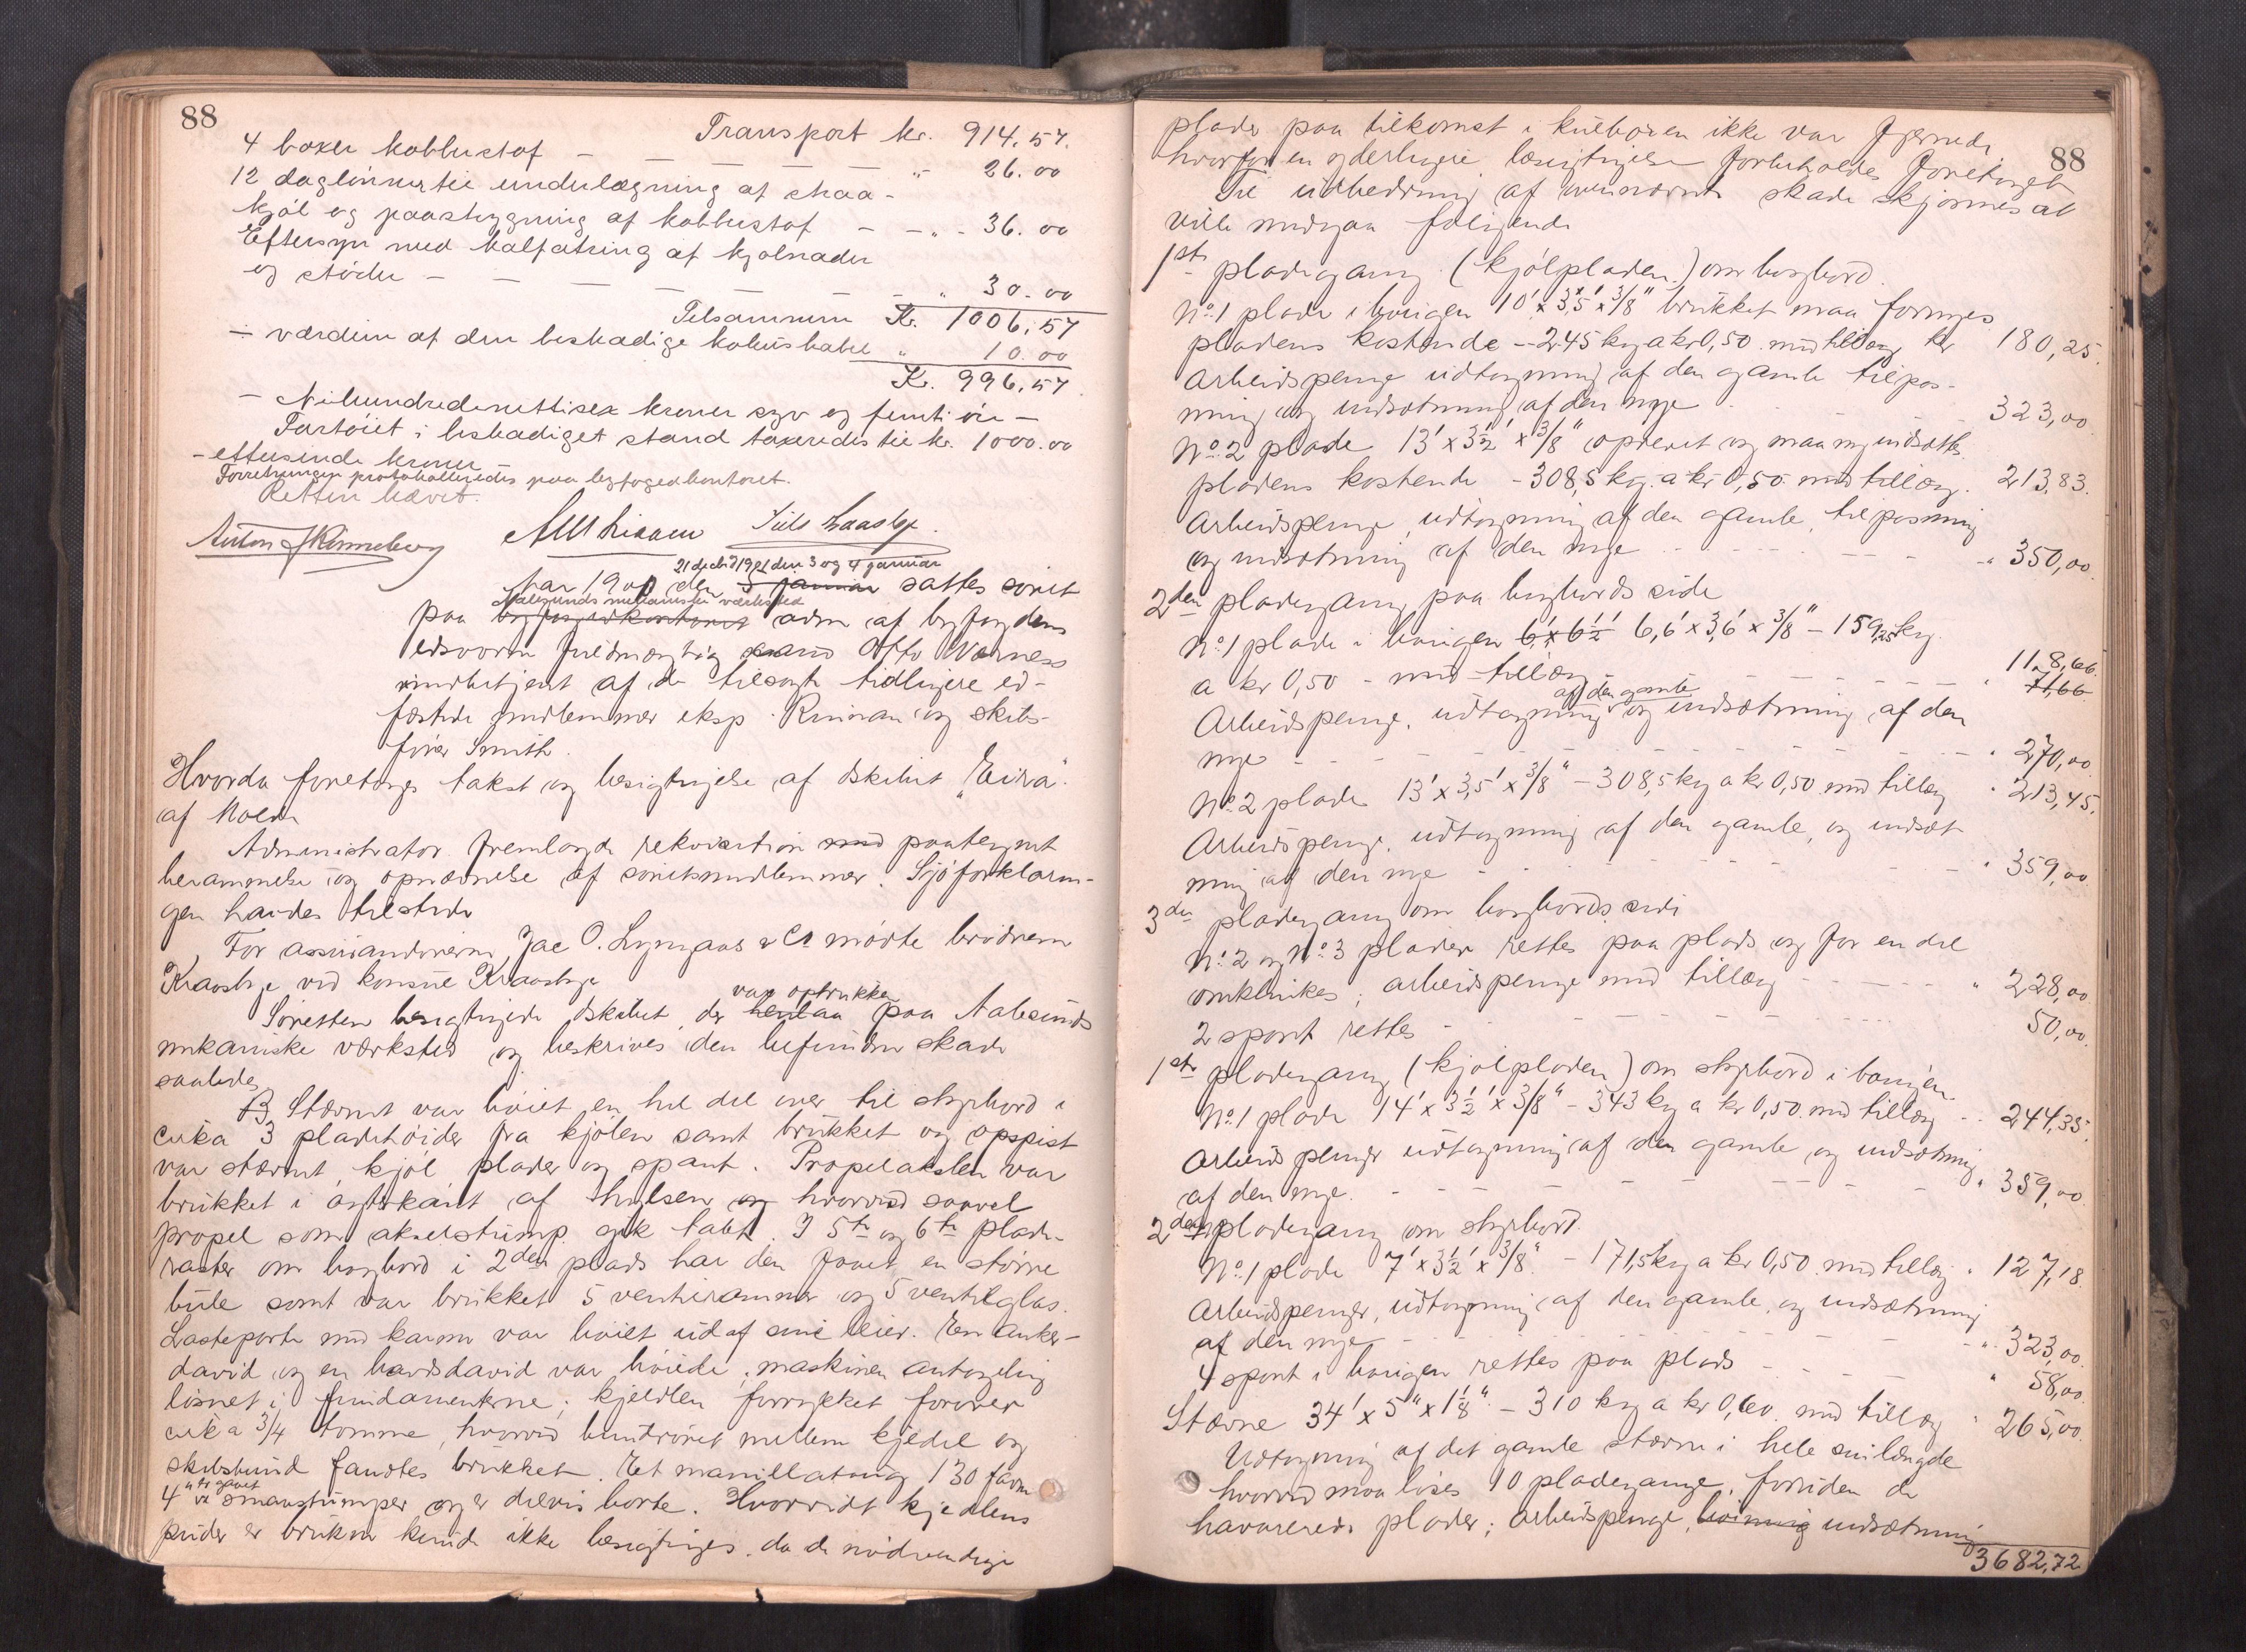 88
Transport kr. 914.57.
4 boxer kobberstof - - - - - " 26.00
12 daglönner til underlægning af straa-
kjöl og paastrygning af kobberstof - - " - 36.00
Eftersyn med kalfatring af kjölnader
og stöder - - - - - - " 30.00
Tilsammen Kr. 1006,57
- værdien af den beskadige kabel " 10.00
Kr. 996,57.
- Nihundredenittisex kroner syv og femti öre -
Fartöiet i beskadiget stand taxeredes til kr. 1000.00
- ettusende kroner -
Forretningen protokolleredes paa byfogedkontoret.
Retten hævet.
Anton J Rönneberg
21 decbr 1901 den 3 og 4 januar
Aar 1900 den 3 januar sattes söret
Aalesunds mekaniske værksted
paa byfogedkontoret adm af byfogdens
edsvorne fuldmægtig cand Otto Varness
medbetjent af de tilsagte tidligere ed-
fæstede medlemmer eksp. Rinnan og skibs-
förer Smith.
Hvorda foretoges takst og besigtigelse af dskibet "Eira"
af Molde
Administrator fremlagde rekvisition med paategnet
berammelse og opnævnelse af söretsmedlemmer. Sjöforklarin-
gen havdes tilstede
For assurandörerne Jac O. Lyngaas & Co mödte brödrene
Kraasbye ved konsul Kraasbye
var optrukken
Söretten besigtigede dskibet, der henlaa paa Aalesunds
mekaniske værksted og beskrives den befundne skade
saaledes
Stævnet var böiet en hel del over til styrbord i
cirka 3 pladehöider fra kjölen samt brukket og opspist
var stævnt, kjöl plader og spant. Propelakslen var
brukket i agterkant af hylsen og hvorved saavel
propel som akselstump gik tabt. I 5te og 6te plade-
raster om bagbord i 2den plads har den faaet en större
bule samt var brukket 5 ventilrammer og 5 ventilglas.
Lasteporte med karme var böiet ud af sine leier. En anker-
david og en baadsdavid var böiede; maskinen antagelig
lösnet i fundamenterne; kjedlen forrykket forover
cirka 3/4 tomme, hvorved bundröret mellem kjedel og
skibsbund fandtes brukket. Et manillatoug 130 favne
4" er gaaet
i smaastumper og er delvis borte. Hvorvidt kjedlens
puder er brukne kunde ikke besigtiges, da de nödvendige
88
plader paa tilkomst i kulboxen ikke var fjernede
hvorfor en yderligere besigtigelse forbeholdes foretaget
Til udbedring af ovennævnte skade skjönnes at
ville medgaa fölgende
1ste pladegang (kjölpladen) om bagbord.
No 1 plade i bougen 10' x 3,5' x 3/8" brukket maa fornyes
pladens kostende - 245 kg a kr 0,50 med tillæg kr 180,25.
Arbeidspenge udtagning af den gamle tilpas-
ning og indsætning af den nye - - - 323,00
No 2 plade 13' x 3½' x 3/8" opreret og maa nyindsættes
pladens kostende - 308,5 kg. a kr 0,50 med tillæg. 213,83.
Arbeidspenge, udtagning af den gamle, tilpasning
og indsætning af den nye - - - - " 350,00.
2den pladegang paa bagbords side
No 1 plade i bougen 6' x 6½' 6,6' x 3,6' x 3/8" - 159,25 kg
a kr 0,50 - med tillæg - - - - " 118,66.
71,66
af den gamle
Arbeidspenge. udtagning og indsætning af den
nye - - - - - - - " 270,00.
No 2 plade 13' x 3,5' x 3/8" - 308,5 kg a kr 0,50 med tillæg " 213,45.
Arbeidspenge. udtagning af den gamle, og indsæt-
ning af den nye - - - - - " 359,00.
3die pladegang om bagbords side
No 2 og No 3 plader rettes paa plads og for en del
omklinkes; arbeidspenge med tillæg - - - " 228,00
2 spant rettes - - - - - - 50,00.
1ste pladegang (kjölpladen) om styrbord i bougen.
No 1 plade 14' x 3½' x 3/8" - 343 kg a kr 0,50 med tillæg - 244,35.
Arbeidspenger udtagning af den gamle og indsætning
af den nye. - - - - - - " 359,00
2den pladegang om styrbord.
No 1 plade 7' x 3½' x 3/8" - 171,5 kg a kr 0,50 med tillæg " 127,18.
Arbeidspenger, udtagning af den gamle, og indsætning
af den nye - - - - - - " 323,00.
4 spant i bougen rettes paa plads - - - " 58,00
Stævne 34' x 5" x 1⅛" - 310 kg a kr 0,60. med tillæg " 265,00.
Udtagning af det gamle stævne i hele sin længde
hvorved maa löses 10 pladegange, foruden de
havarerede plader; arbeidspenge, böining indsætning
3682,72